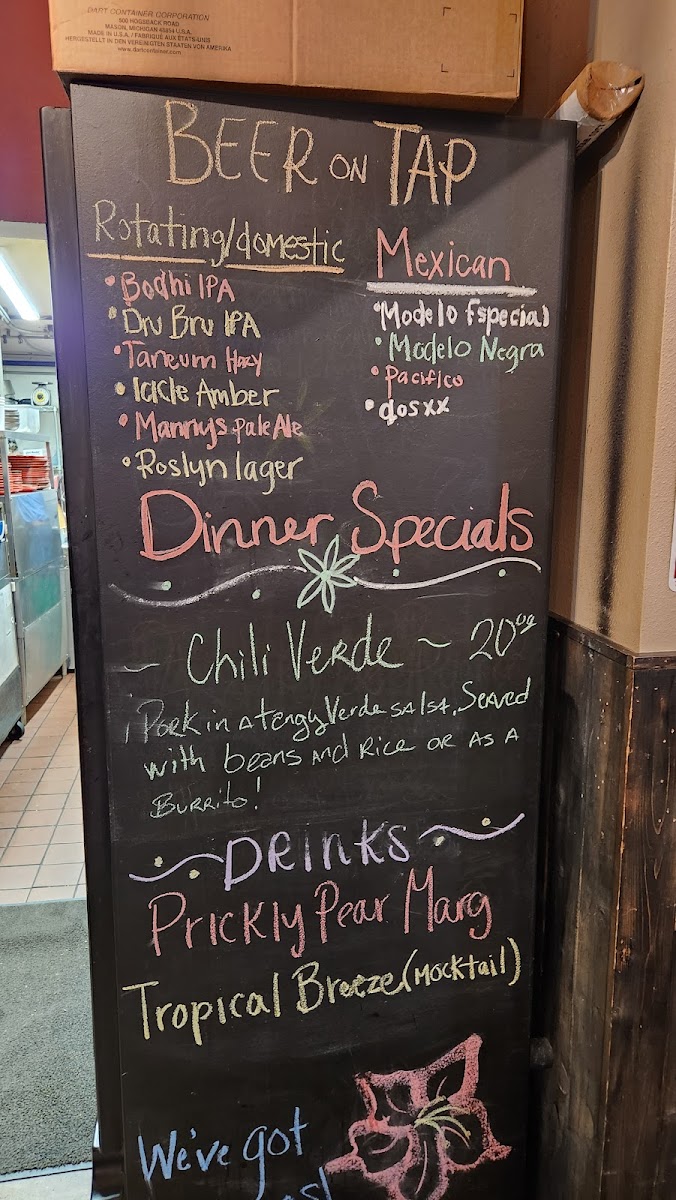 DART CONTAINER CORPORATION
500 HOGSBACK ROAD
MASON, MICHIGAN 48854 U.S.A.
MADE IN U.S.A. / FABRIQUE AUX ÉTATS-UNIS
HERGESTELLT IN DEN VEREINIGTEN STAATEN VON AMERIKA
www.dartcontainer.com
BEER ON TAP
Rotating/domestic
• Bodhi IPA
• Dru Bru IPA
• Taneum Hazy
• Icicle Amber
• Mannys Pale Ale
• Roslyn lager
Mexican
• Modelo Especial
• Modelo Negra
• Pacifico
• dosxx
Dinner Specials
~ Chili Verde ~ 20
Pork in a tangy Verde salsa, Served
with beans and Rice or as a
Burrito!
DRINKS
Prickly Pear Marg
Tropical Breeze (Mocktail)
We've got